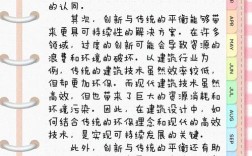 的认同。
其次，创新与传统的平衡能够带
来更具可持续性的解决方案。在许多
领域，过度的创新可能会导致资源的
浪费和环境的破坏。以建筑行业为
例，传统的建筑技术虽然效率较低，
但却更加环保，而现代技术虽然
高效，但也带来了巨大的资源消耗和
环境污染。因此，在建筑设计中，如
何结合传统的环保理念和现代的高效
技术，是实现可持续发展的关键。
此外，创新与传统的平衡还有助
APR
MAY
JUN
JUL
AUG
SEP